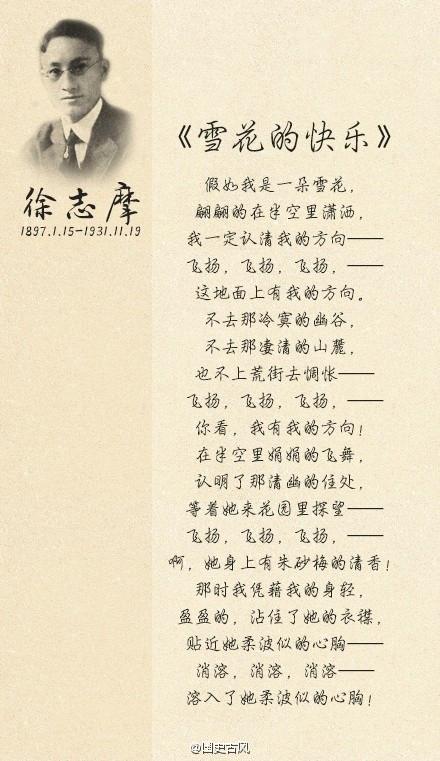 徐志摩
1897.1.15-1931.11.19
《雪花的快乐》
假如我是一朵雪花，
翩翩的在半空里潇洒，
我一定认清我的方向——
飞扬，飞扬，飞扬，——
这地面上有我的方向。
不去那冷寞的幽谷，
不去那凄清的山麓，
也不上荒街去惆怅——
飞扬，飞扬，飞扬，——
你看，我有我的方向！
在半空里娟娟的飞舞，
认明了那清幽的住处，
等着她来花园里探望——
飞扬，飞扬，飞扬，——
啊，她身上有朱砂梅的清香！
那时我凭藉我的身轻，
盈盈的，沾住了她的衣襟，
贴近她柔波似的心胸——
消溶，消溶，消溶——
溶入了她柔波似的心胸！
@国史古风